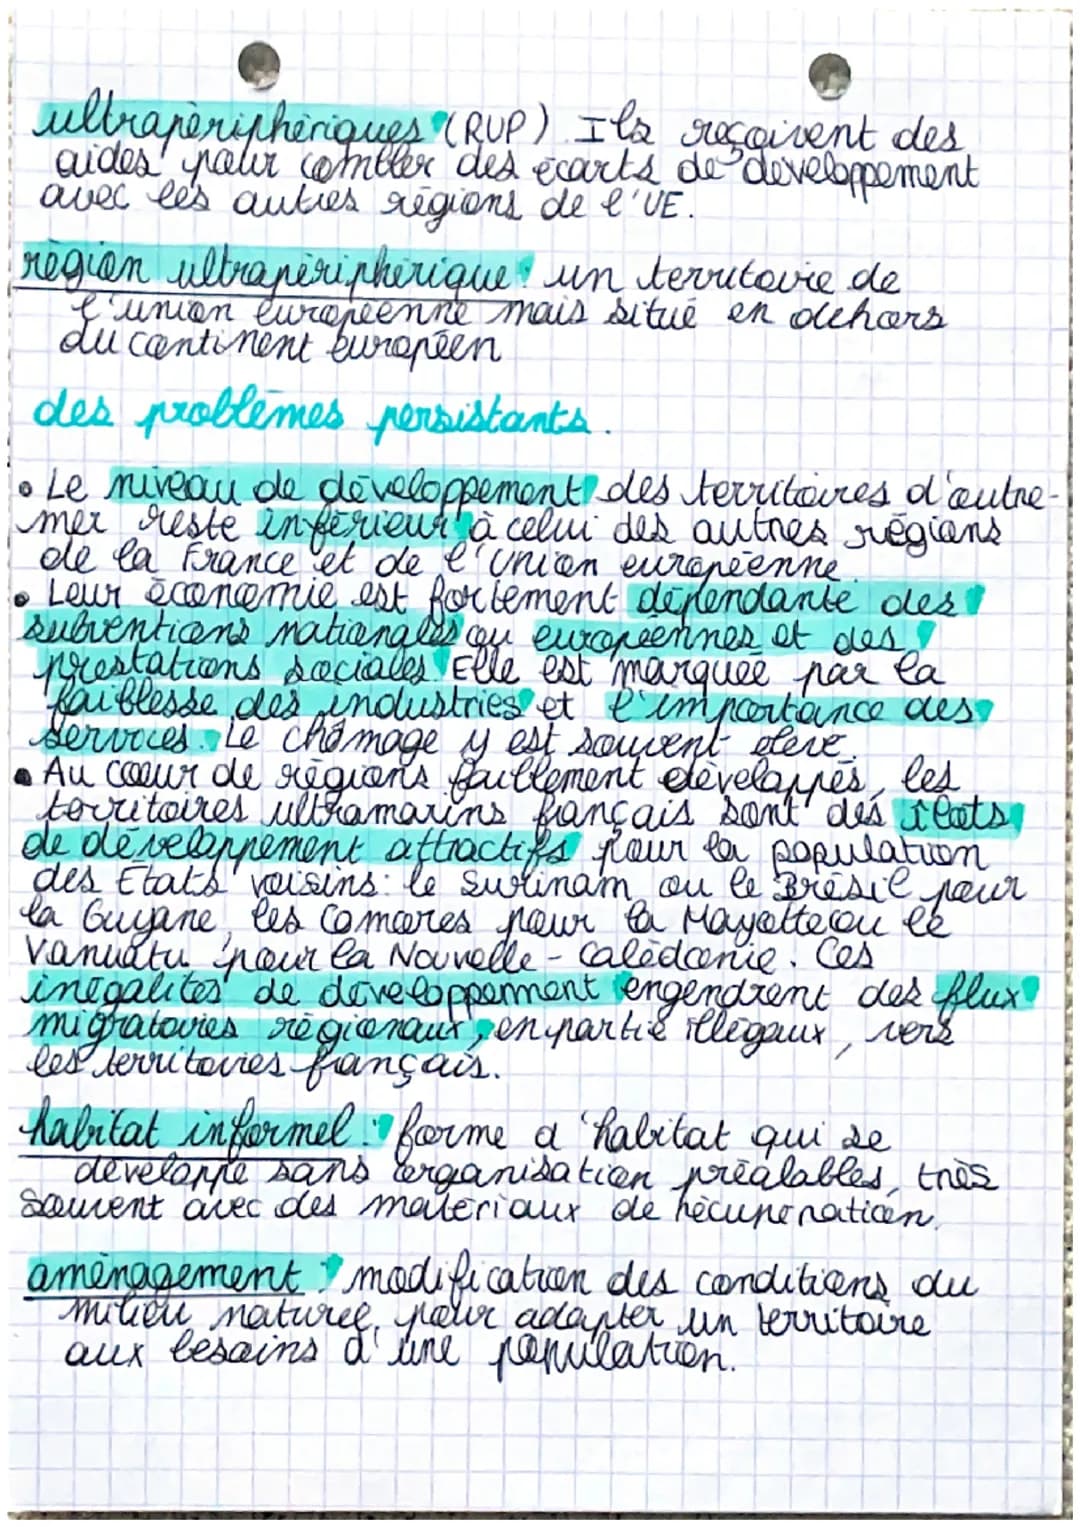 ultrapériphériques (RUP). Ils reçoivent des
aides pour combler des écarts de développement
avec les autres régions de l'UE.
région ultrapériphérique : un territoire de
l'union européenne mais situé en dehors
du continent européen
des problèmes persistants.
• Le niveau de développement des territoires d'outre-
mer reste inférieur à celui des autres régions
de la France et de l'Union européenne.
• Leur économie est fortement dépendante des
subventions nationales ou européennes et des
prestations sociales. Elle est marquée par la
faiblesse des industries et l'importance des
services. Le chômage y est souvent élevé.
• Au coeur de régions faiblement développés, les
territoires ultramarins français sont des îlots
de développement attractifs pour la population
des États voisins : le Surinam ou le Brésil pour
la Guyane, les Comores pour la Mayotte ou le
Vanuatu pour la Nouvelle-Calédonie. Ces
inégalités de développement engendrent des flux
migratoires régionaux, en partie illégaux, vers
les territoires français.
habitat informel : forme d'habitat qui se
développe sans organisation préalables, très
souvent avec des matériaux de récupération.
aménagement : modification des conditions du
milieu naturel pour adapter un territoire
aux besoins d'une population.